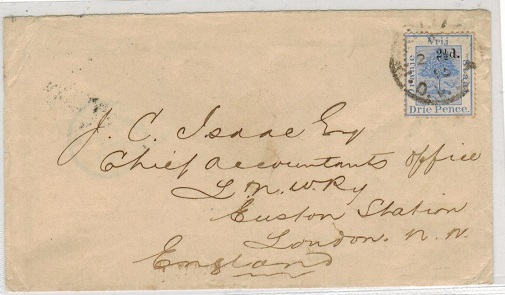 Vrij
2½d.
Oranje
Staat
Drie Pence.
J. C. Isaac Esq
Chief Accountants office
L. N. W. Ry
Euston Station
London. N. W.
England